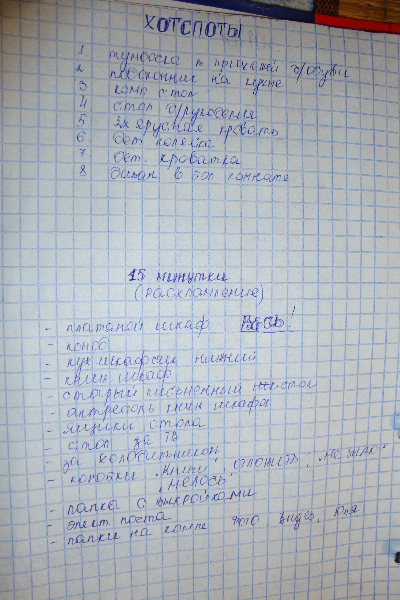 ХОТСПОТЫ
1 тумбочка в прихожей д/обуви
2 подоконник на кухне
3 комп стол
4 стол д/рукоделия
5 2х ярусная кровать
6 дет полейка
7 дет. кроватка
8 диван в бол комнате
15 минутки
(расхламление)
- платяной шкаф ВЕСЬ!
- комод
- кух шкафчик нижний
- книж шкаф
- старый письменный стол
- антресоль книж шкафа
- ящики стола
- стол за ТВ
- за холодильником
- коробки "книги", отложить, "не знаю"
"мелось"
- папка с выкройками
- элект почта
- папки на компе фото видео, Юля